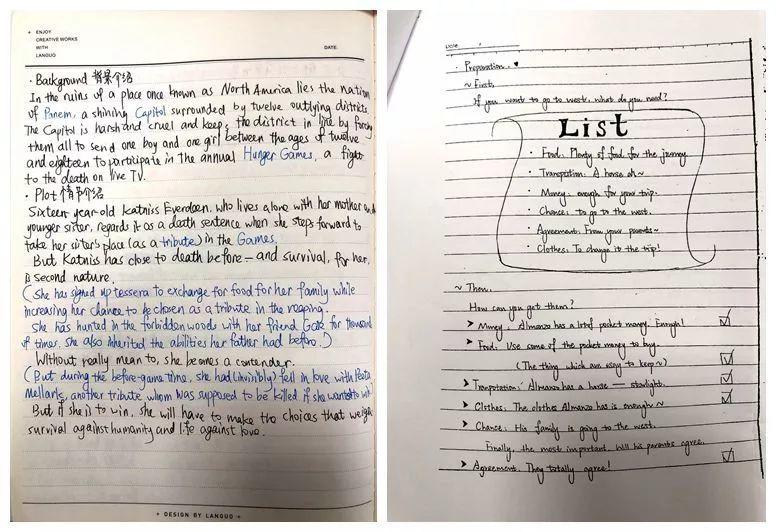 + ENJOY
CREATIVE WORKS
WITH
LANGUO
DATE.
· Background 背景介绍
In the ruins of a place once known as North America lies the nation
of Panem, a shining Capitol surrounded by twelve outlying districts.
The Capitol is harsh and cruel and keeps the district in line by forcing
them all to send one boy and one girl between the ages of twelve
and eighteen to participate in the annual Hunger Games, a fight
to the death on live TV.
· Plot 情节介绍
Sixteen-year-old Katniss Everdeen, who lives alone with her mother and
younger sister, regards it as a death sentence when she steps forward to
take her sister's place (as a tribute) in the Games.
But Katniss has close to death before — and survival, for her,
is second nature.
(She has signed up tessera to exchange for food for her family while
increasing her chance to be chosen as a tribute in the reaping.
She has hunted in the forbidden woods with her friend Gale for thousand
of times, she also inherited the abilities her father had before.)
Without really mean to, she becomes a contender.
(But during the before-game time, she had (invisibly) fell in love with Peeta
Mellark, another tribute whom was supposed to be killed if she wanted to win)
But if she is to win, she will have to make the choices that weigh
survival against humanity and life against love.
+ DESIGN BY LANGUO +
Date. /
· Preparation. ♥
~ First,
If you want to go to west, what do you need?
List
· Food: Plenty of food for the journey
· Tranpotation: A horse oh~
· Money: enough for your trip.
· Chance: to go to the west.
· Agreement: From your parents~
· Clothes: To change it the trip!
~ Then.
How can you get them?
➤ Money: Almanzo has a lot of pocket money. Enough! ☑
➤ Food: Use some of the pocket money to buy.
(The thing which are easy to keep~) ☑
➤ Tranpotation: Almanzo has a horse — starlight. ☑
➤ Clothes: The clothes Almanzo has is enough~ ☑
➤ Chance: His family is going to the west.
Finally, the most important. Will his parents agree.
➤ Agreement. They totally agree! ☑